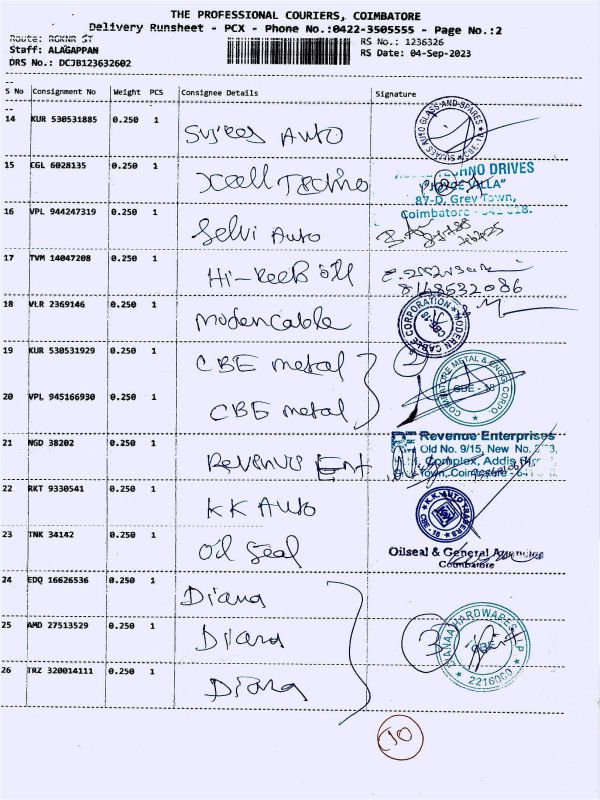 THE PROFESSIONAL COURIERS, COIMBATORE
Delivery Runsheet - PCX - Phone No.:0422-3505555 - Page No.:2
Route: RGKNR ST
RS No.: 1236326
Staff: ALAGAPPAN
RS Date: 04-Sep-2023
DRS No.: DCJB123632602
S No Consignment No Weight PCS Consignee Details Signature
14 KUR 530531885 0.250 1 Sujees Auto
15 CGL 6028135 0.250 1 Xcell Techno
TECHNO DRIVES
87-D, Grey Town,
Coimbatore - 641 018.
16 VPL 944247319 0.250 1 Selvi Auto
17 TVM 14047208 0.250 1 Hi-
8148532086
18 VLR 2369146 0.250 1 Moden Cable
MODERN CABLE CORPORATION CBE-18
19 KUR 530531929 0.250 1 CBE metal 2
20 VPL 945166930 0.250 1 CBE metal
COIMBATORE METAL & ENGG CORPO. CBE - 18
21 NGD 38202 0.250 1 Revenue Ent
Revenue Enterprises
Old No. 9/15, New No.
Complex, Addis
Town, Coimbatore - 641
22 RKT 9330541 0.250 1 KK Auto
K.K. AUTO TRADERS CBE - 18
23 TNK 34142 0.250 1 Oil Seal
Oilseal & General Agencies
Coimbatore
24 EDQ 16626536 0.250 1 Diana
25 AMD 27513529 0.250 1 Diana 3
26 TRZ 320014111 0.250 1 Diana
HARDWARES LLP CBE 2216000
10